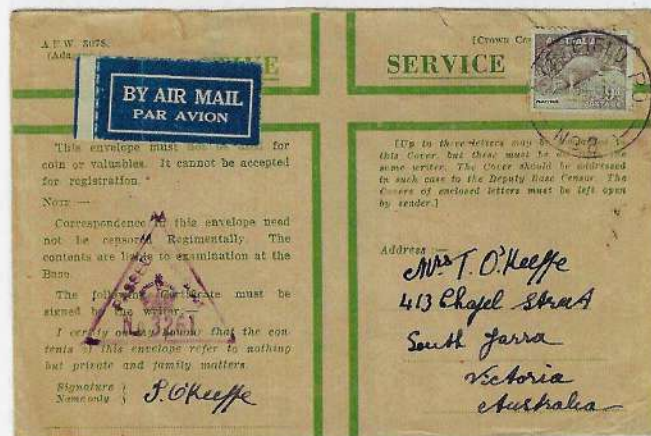 A.F.W. 3078.
BY AIR MAIL
PAR AVION
"This envelope must not be used for
coin or valuables. It cannot be accepted
for registration."
NOTE :—
Correspondence in this envelope need
not be censored Regimentally. The
contents are liable to examination at the
Base.
The following Certificate must be
signed by the writer:—
I certify on my honour that the con-
tents of this envelope refer to nothing
but private and family matters
Signature }
Name only }
J. O'Keeffe
PASSED
3261
[Crown
SERVICE
AUSTRALIA
9d
POSTAGE
[Up to three letters may be
this Cover but these must be
same writer. The Cover should be addressed
in such case to the Deputy Base Censor. The
Covers of enclosed letters must be left open
by sender.]
Address :—
Mrs T. O'Keeffe
413 Chapel Street
South Yarra
Victoria
Australia